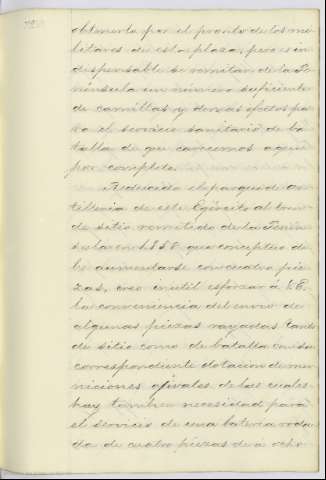 obtenerla por el pronto de los mi-
litares de esta plaza, pero es in-
dispensable se remitan de la Pe-
nínsula un número suficiente
de camillas y demas efectos pa-
ra el servicio sanitario de ba-
talla de que carecemos aquí
por completo.
Reducido el parque de ar-
tillería de este Ejército al tren
de sitio remitido de la Penín-
sula en 1858 que conceptuo de-
be aumentarse con cuatro pie-
zas, creo inutil esforzar á V.E.
la conveniencia del envio de
algunas piezas rayadas tanto
de sitio como de batalla con su
correspondiente dotacion de mu-
niciones ojivales, de las cuales
hay tambien necesidad para
el servicio de una bateria roda-
da de cuatro piezas de á ocho